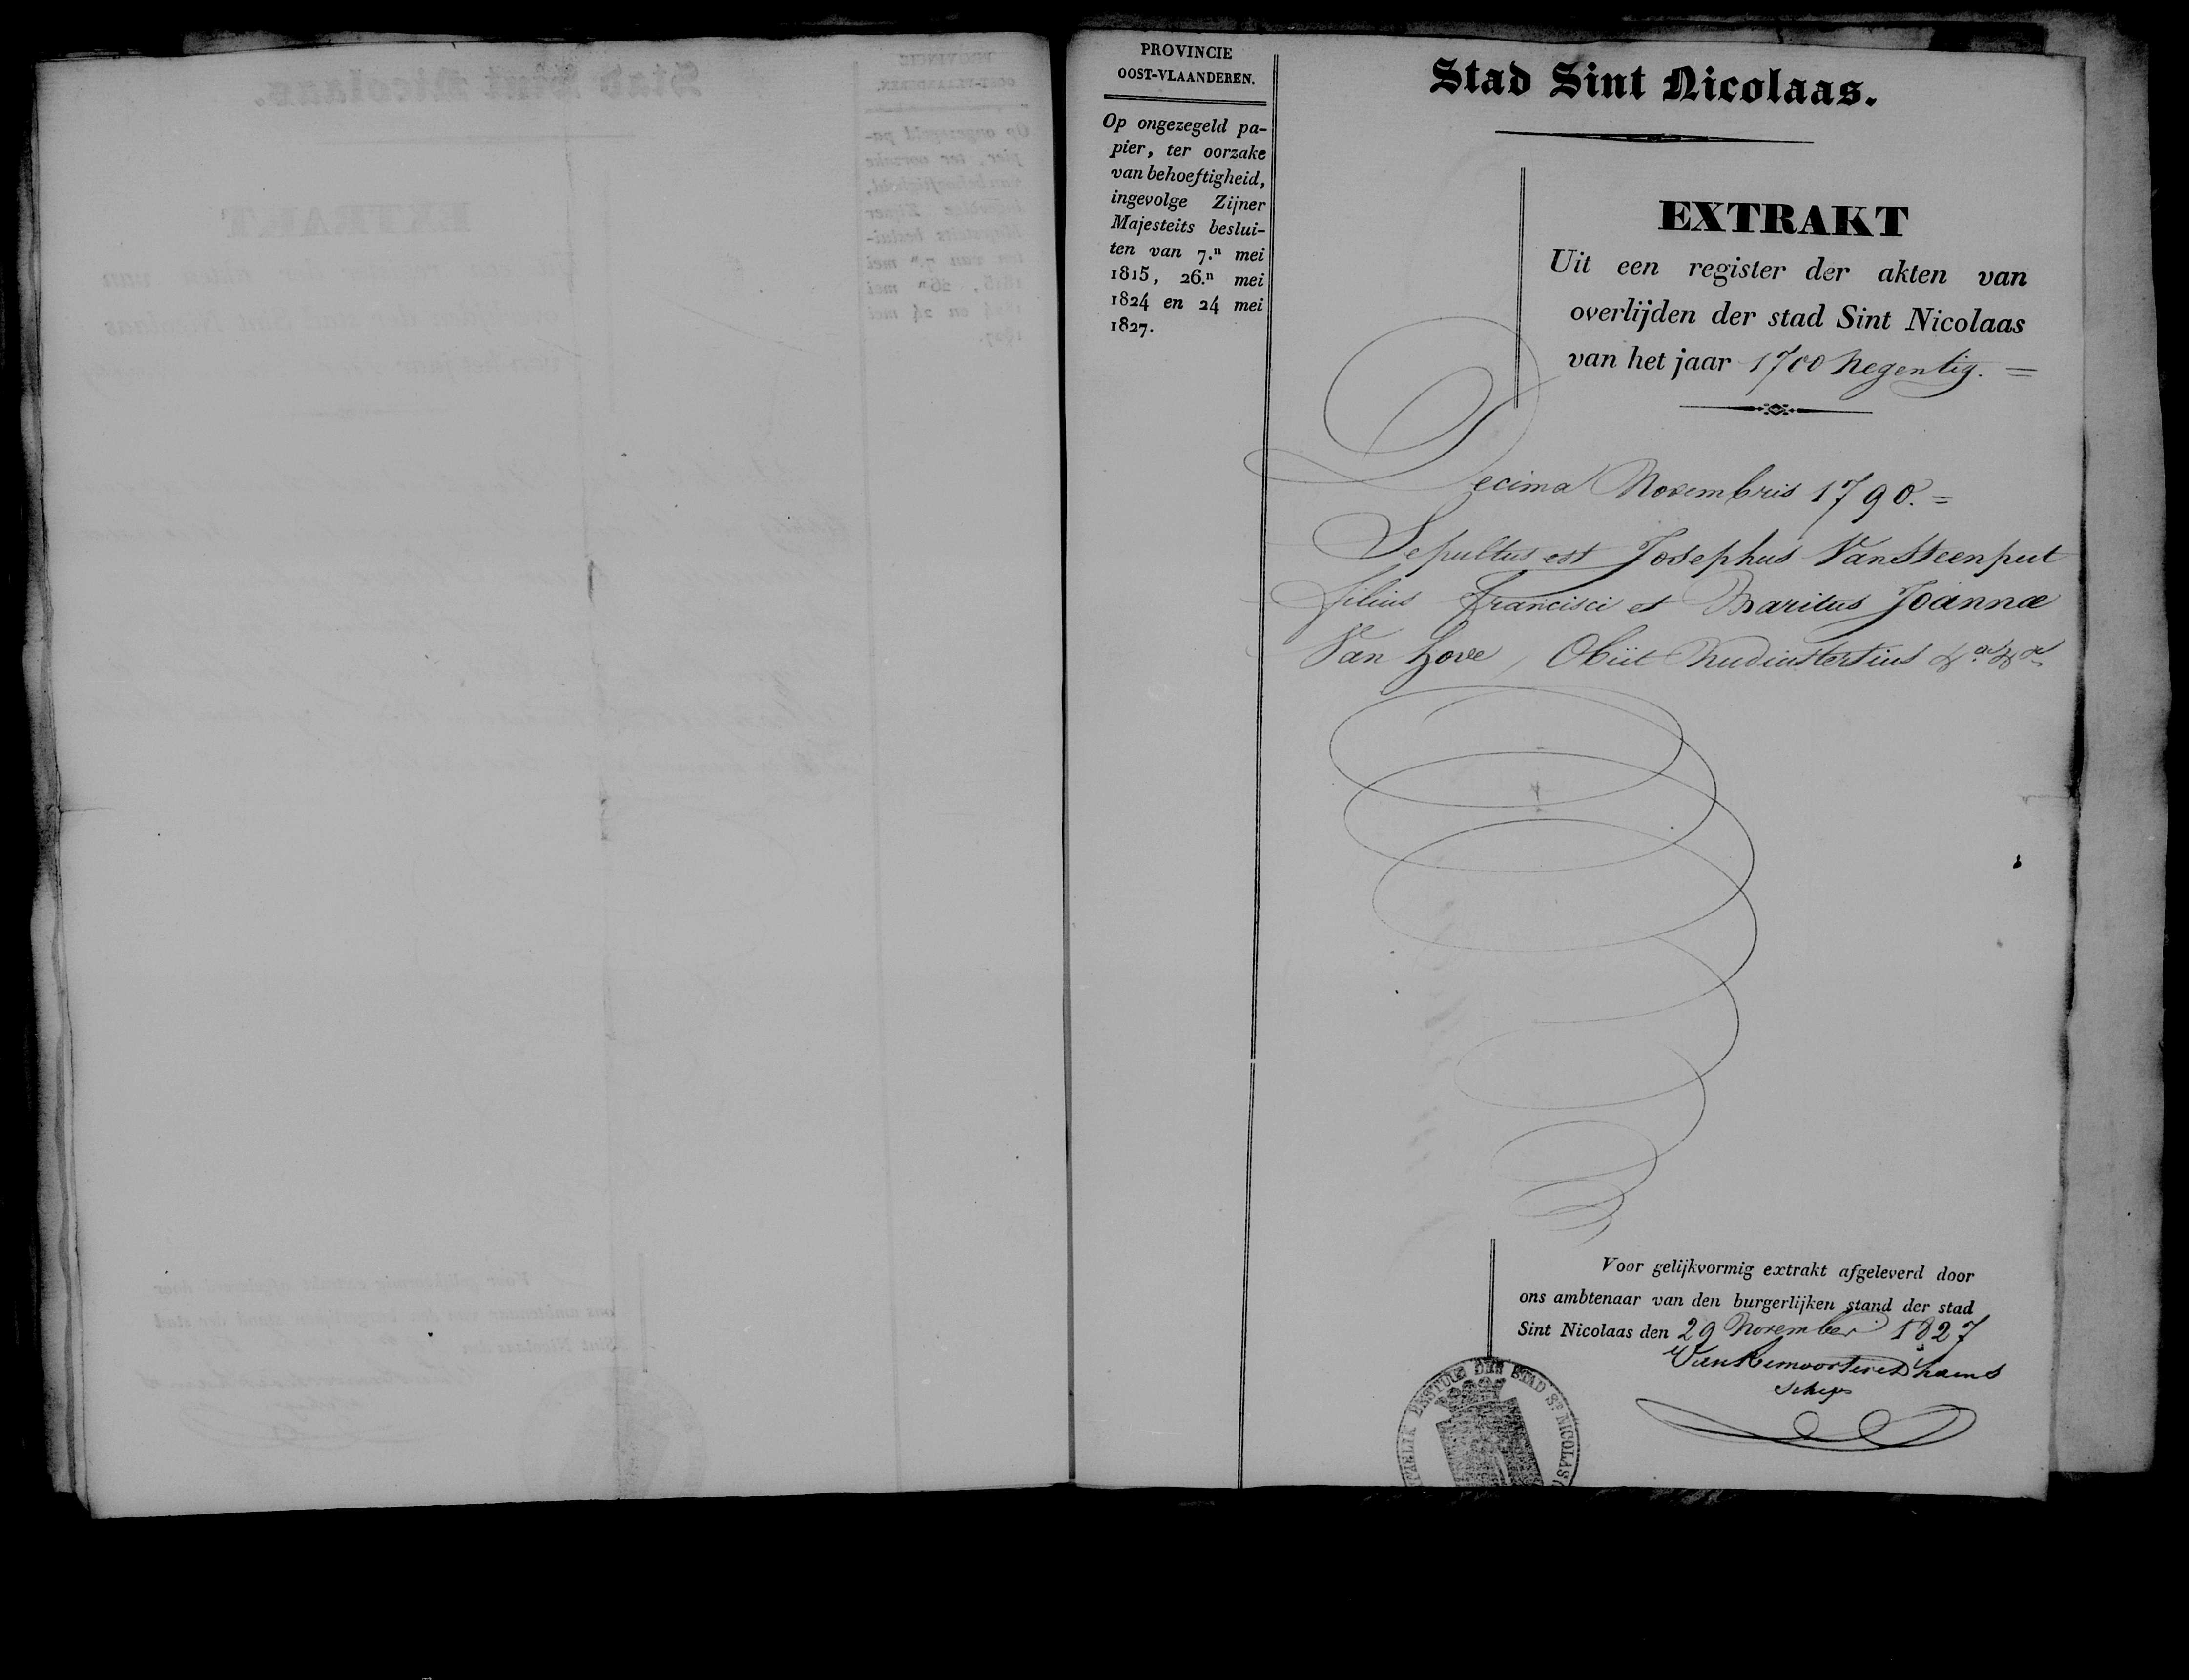 PROVINCIE
OOST-VLAANDEREN.
Op ongezegeld pa-
pier, ter oorzake
van behoeftigheid,
ingevolge Zijner
Majesteits beslui-
ten van 7.n mei
1815, 26.n mei
1824 en 24 mei
1827.
Stad Sint Nicolaas.
EXTRAKT
Uit een register der akten van
overlijden der stad Sint Nicolaas
van het jaar 1700 Negentig. =
Decima Novembris 1790. =
Sepultus est Josephus VanSteenput
filius Francisci et Maritus Joannæ
Van hove, Obiit Nudiustertius &a &a
Voor gelijkvormig extrakt afgeleverd door
ons ambtenaar van den burgerlijken stand der stad
Sint Nicolaas den 29 November 1827
Schep
DER STAD St NICOLAAS